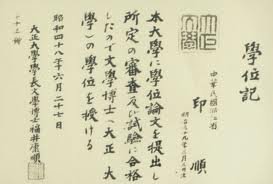 學位記
中華民國浙江省
印順
本大學に學位論文を提出し
所定の審査及び試験に合格
したので文學博士（大正大
學）の學位を授ける
昭和四十八年六月二十七日
大正大學學長文學博士福井康順